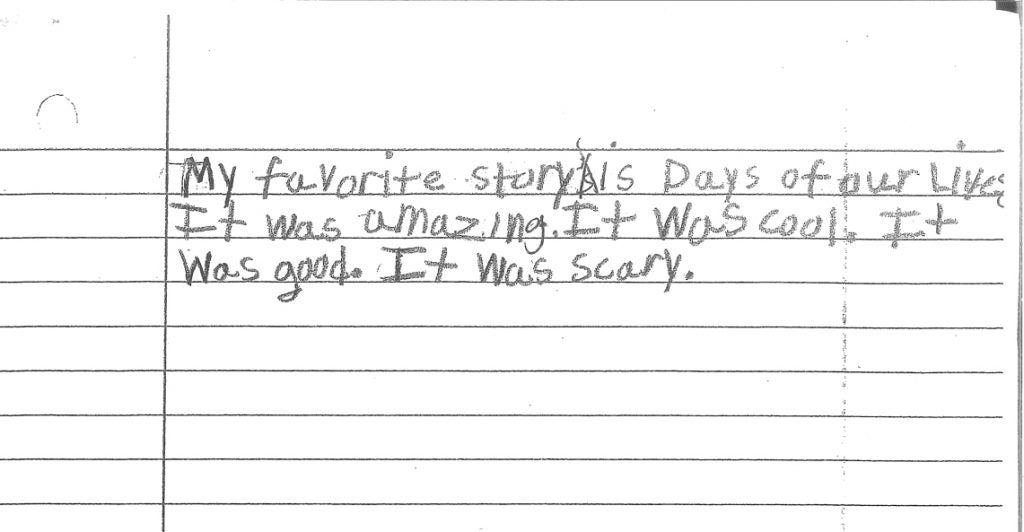 My favorite story is Days of our Lives
It was amazing. It was cool. It
was good. It was scary.